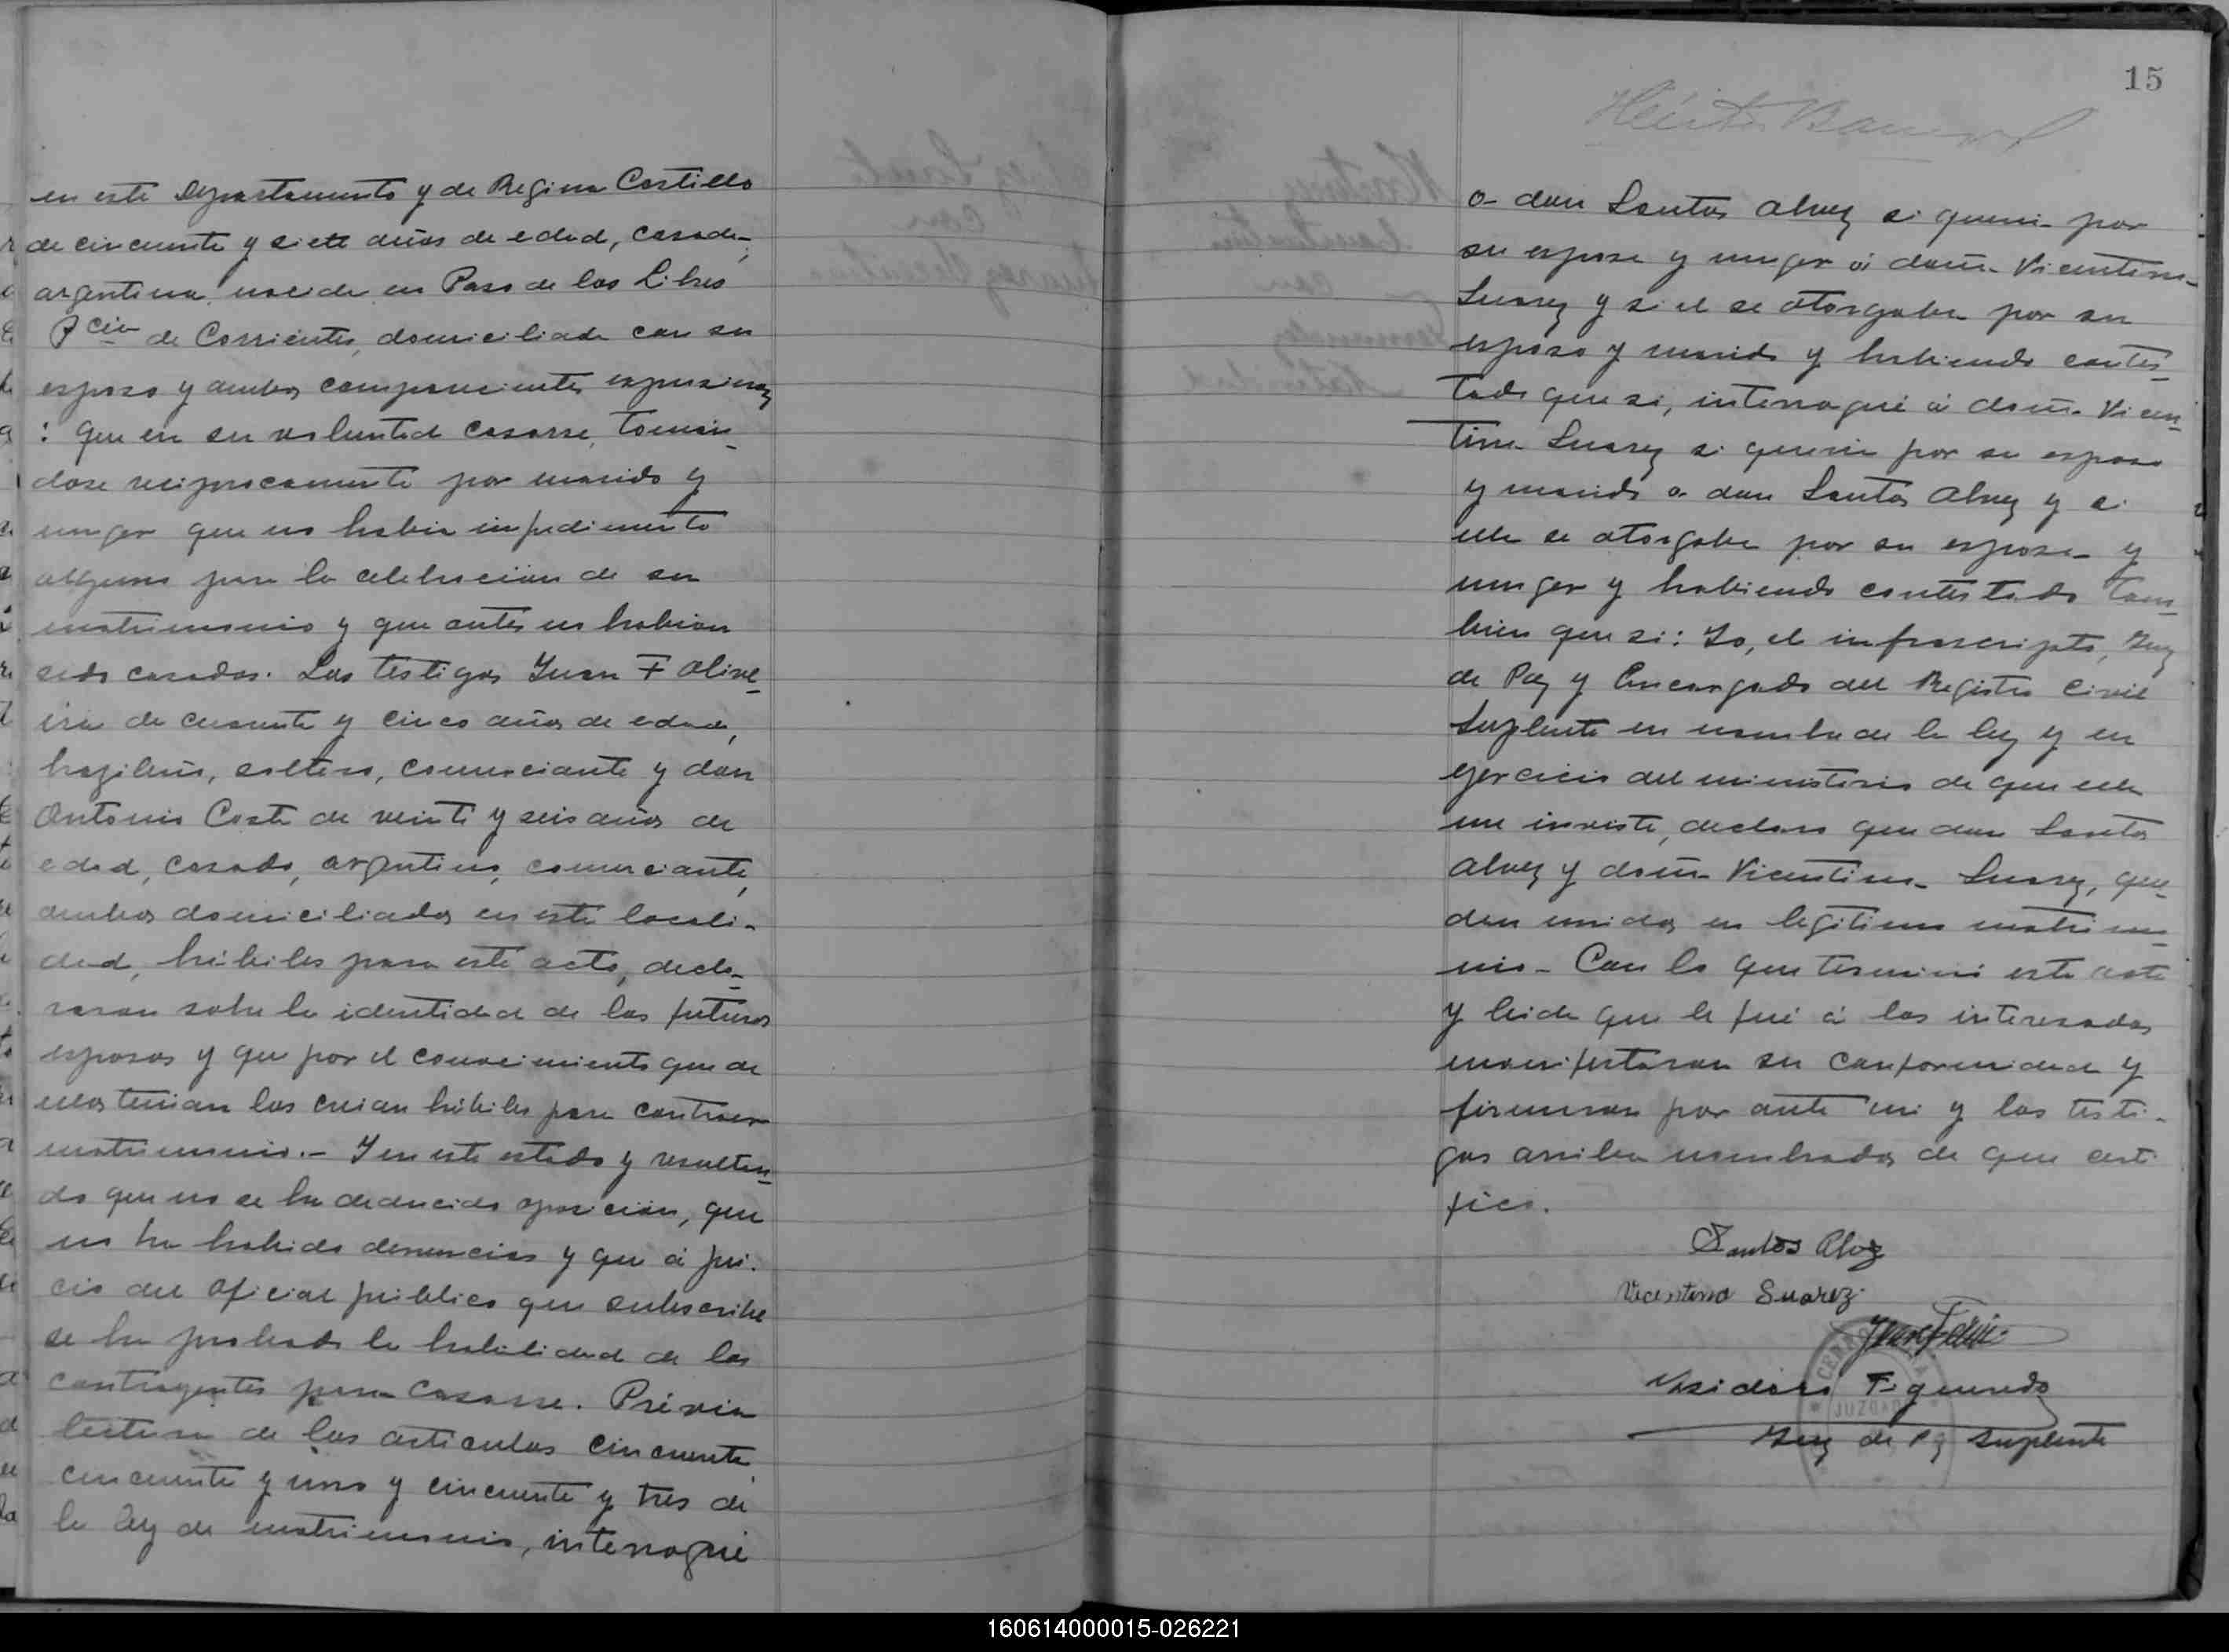 en este Departamento y de Regina Castillo
de cincuenta y siete años de edad, casada,
argentina, nacida en Paso de los Libres
Pcia de Corrientes, domiciliada con su
esposo y ambos comparecientes expusieron
: Que era su voluntad casarse, tomán-
dose reciprocamente por marido y
muger que no habia impedimento
alguno para la celebracion de su
matrimonio y que antes no habian
sido casados. Los testigos Juan F Olive-
ira de cuarenta y cinco años de edad,
brazilero, soltero, comerciante y don
Antonio Costa de veinte y seis años de
edad, casado, argentino, comerciante,
ambos domiciliados en esta locali-
dad, hábiles para este acto, decla-
raron sobre la identidad de los futuros
esposos y que por el conocimiento que de
ellos tenian los creian hábiles para contraer
matrimonio.- Y en este estado y resultan-
do que no se ha deducido oposición, que
no ha habido denuncias y que á jui-
cio del oficial público que subscribe
se ha probado la habilidad de los
contrayentes para casarse. Prévia
lectura de los articulos cincuenta,
cincuenta y uno y cincuenta y tres de
la ley de matrimonio, interrogué
15
Héctor
a don Santos Alvez si queria por
su esposa y muger á doña Vicentina
Suarez y si el se otorgaba por su
esposo y marido y habiendo contes-
tado que si, interrogué á doña Vicen-
tina Suarez si queria por su esposo
y marido a don Santos Alvez y si
ella se otorgaba por su esposa y
muger y habiendo contestado tam-
bien que si: Yo, el infrascripto, Juez
de Paz y Encargado del Registro Civil
Suplente en nombre de la ley y en
ejercicio del ministerio de que ella
me inviste, declaro que don Santos
Alvez y doña Vicentina Suarez, que-
dan unidos en legitimo matrimo-
nio - Con lo que terminó este acto
y leida que le fué á los interesados
manifestaron su conformidad y
firmaron por ante mi y los testi-
gos arriba nombrados de que certi
fico.
Santos Alvez
Vicentina Suarez
JUZGADO
Isidoro Figueredo
Juez de Pz Suplente
160614000015-026221